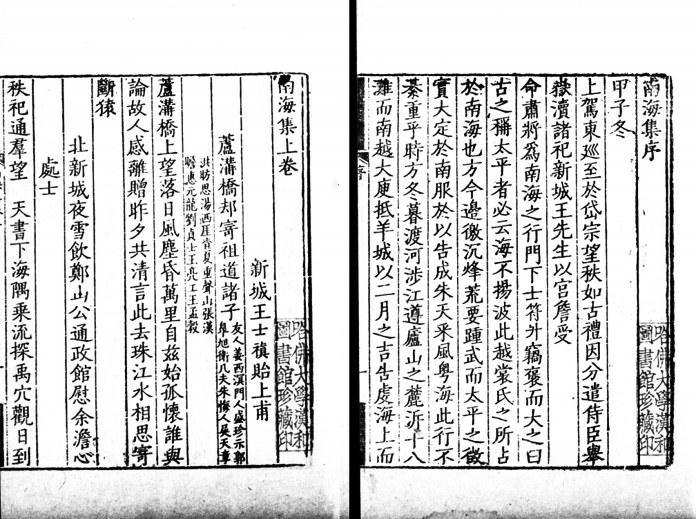 南海集序
甲子冬
上駕東巡至於岱宗望秩如古禮因分遣侍臣舉
嶽瀆諸祀新城王先生以宮詹受
命肅將為南海之行門下士符升竊褎而大之曰
古之稱太平者必云海不揚波此越裳氏之所占
於南海也方今邊徼沉烽荒要踵武而太平之徵
實大定於南服於以告成朱天采風粤海此行不
綦重乎時方冬暮渡河涉江遵廬山之麓泝十八
灘而南越大庾抵羊城以二月之吉告虔海上而
哈佛大學漢和
圖書館珍藏印
南海集上卷
新城王士禛貽上甫
蘆溝橋却寄祖道諸子
友人姜西溟門人盛珍示郭
皋旭衛凡夫朱悔人吳天章
張漢
瞻惠元龍劉貞士王亮工王孟穀
蘆溝橋上望落日風塵昏萬里自茲始孤懷誰與
論故人感離贈昨夕共清言此去珠江水相思寄
斷猿
北新城夜雪飲鄭山公通政館慰余澹心
處士
秩祀通羣望天書下海隅乘流探禹穴觀日到
哈佛大學漢和
圖書館珍藏印